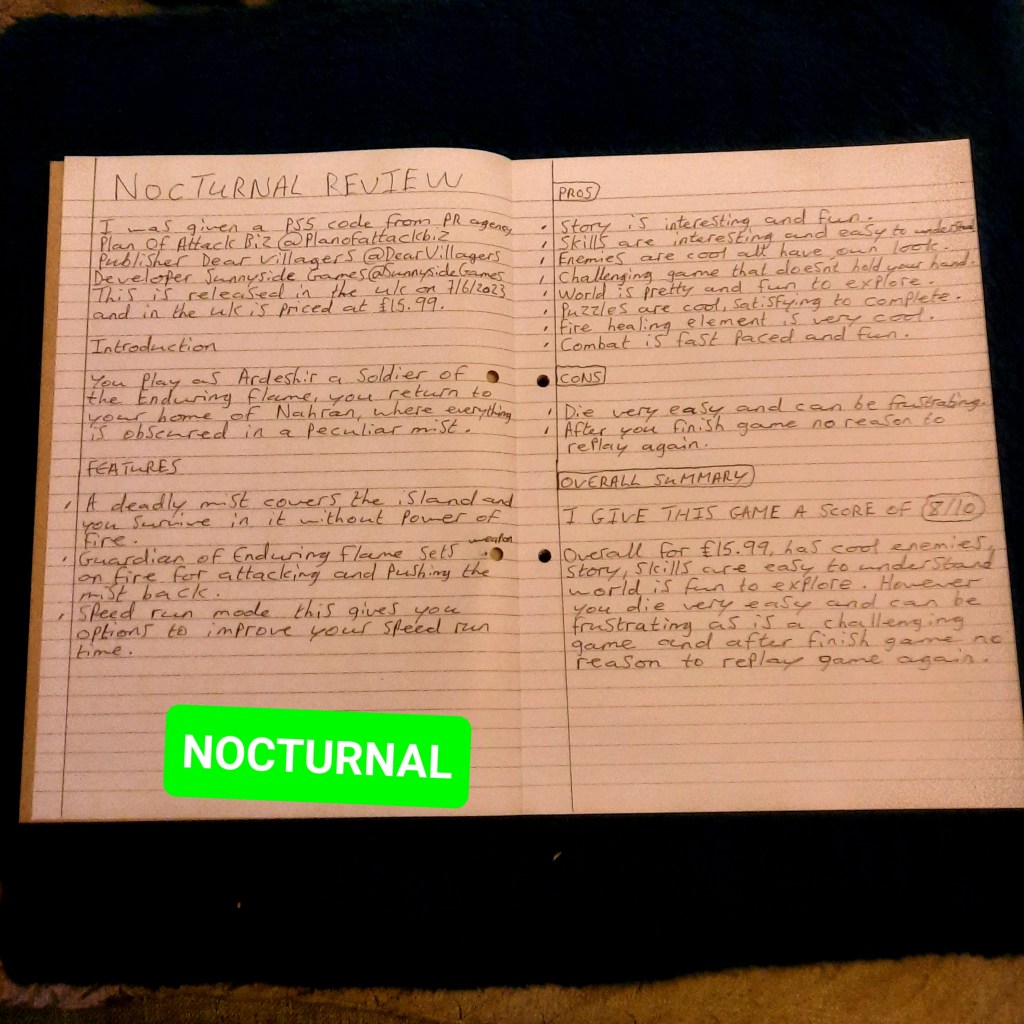 NOCTURNAL REVIEW
I was given a PS5 code from PR agency
Plan Of Attack Biz @Planofattackbiz
Publisher Dear Villagers @DearVillagers
Developer Sunnyside Games @SunnysideGames
This is released in the uk on 7/6/2023
and in the uk is priced at £15.99.
Introduction
You play as Ardeshir a Soldier of
the Enduring flame, you return to
your home of Nahran, where everything
is obscured in a peculiar mist.
FEATURES
A deadly mist covers the island and
you survive in it without power of
fire.
Guardian of Enduring flame sets weapon
on fire for attacking and pushing the
mist back.
Speed run mode this gives you
options to improve your speed run
time.
NOCTURNAL
PROS
Story is interesting and fun.
Skills are interesting and easy to understand
Enemies are cool all have own look.
Challenging game that doesnt hold your hand.
World is pretty and fun to explore.
Puzzles are cool, satisfying to complete.
Fire healing element is very cool.
Combat is fast paced and fun.
CONS
Die very easy and can be frustrating.
After you finish game no reason to
replay again.
OVERALL SUMMARY
I GIVE THIS GAME A SCORE OF 8/10
Overall for £15.99, has cool enemies,
story, skills are easy to understand
world is fun to explore. However
you die very easy and can be
frustrating as is a challenging
game and after finish game no
reason to replay game again.